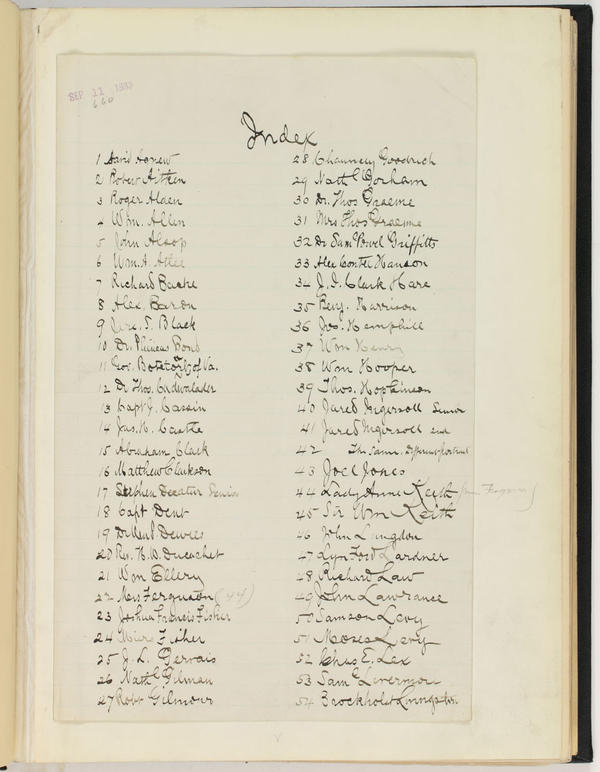 SEP 22
660
Index
1 David Agnew
2 Robert Aitken
3 Roger Alden
4 Wm. Allen
5 John Alsop
6 Wm. A. Atlee
7 Richard Bache
8 Alex. Baron
9 Jere. S. Black
10 Dr. Phineas Bond
11 Gov. of Va.
12 Dr Thos. Cadwalader
13 Capt J. Cassin
14 Jas. H. Castle
15 Abraham Clark
16 Matthew Clarkson
17 Stephen Decatur Senior
18 Capt Dent
19 Dewees
20 Rev. H. W. Ducachet
21 Wm Ellery
22 Mrs Ferguson (44)
23 Joshua Francis Fisher
24 Miers Fisher
25 J. L. Gervais
26 Nathl Gilman
27 Robt Gilmour
28 Chauncey Goodrich
29 Nathl Gorham
30 Dr. Thos Graeme
31 Mrs Thos Graeme
32 Dr Saml Powel Griffitts
33 Alex Contee Hanson
34 J. I. Clark Hare
35 Benj. Harrison
36 Jos. Hemphill
37 Wm Henry
38 Wm Hooper
39 Thos. Hopkinson
40 Jared Ingersoll Senior
41 Jared Ingersoll
42 The Same. Different portrait
43 Joel Jones
44 Lady Anne Keith
45 Sir Wm Keith
46 John Langdon
47 Lyn Ford Lardner
48 Richard Law
49 John Lawrance
50 Samson Levy
51 Moses Levy
52 Chas E. Lex
53 Saml Livermore
54 Brockholst Livingston